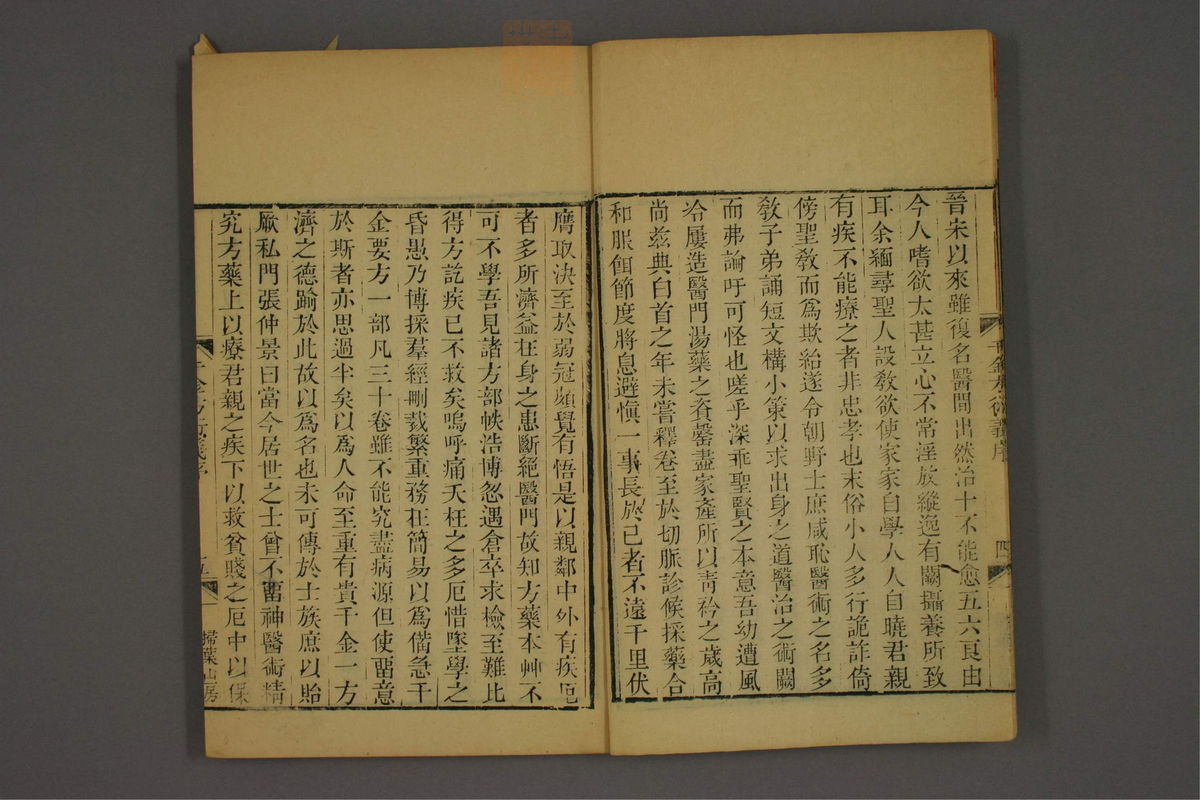 晉宋以來雖復名醫間出然治十不能愈五六良由
今人嗜欲太甚立心不常淫放縱逸有闕攝養所致
耳余緬尋聖人設教欲使家家自學人人自曉君親
有疾不能療之者非忠孝也末俗小人多行詭詐倚
傍聖教而爲欺紿遂令朝野士庶咸恥醫術之名多
教子弟誦短文構小策以求出身之道醫治之術闕
而弗論吁可怪也嗟乎深乖聖賢之本意吾幼遭風
冷屢造醫門湯藥之資罄盡家產所以青衿之歲高
尚茲典白首之年未嘗釋卷至於切脈診候採藥合
和服餌節度將息避愼一事長於己者不遠千里伏
膺取決至於弱冠頗覺有悟是以親鄰中外有疾厄
者多所濟益在身之患斷絕醫門故知方藥本艸不
可不學吾見諸方部帙浩博忽遇倉卒求檢至難比
得方訖疾已不救矣嗚呼痛夭枉之多厄惜墜學之
昏愚乃博採羣經刪裁繁重務在簡易以爲備急千
金要方一部凡三十卷雖不能究盡病源但使畱意
於斯者亦思過半矣以爲人命至重有貴千金一方
濟之德踰於此故以爲名也未可傳於士族庶以貽
厥私門張仲景曰當今居世之士曾不畱神醫術精
究方藥上以療君親之疾下以救貧賤之厄中以保
千金方衍義序
四
千金方衍義序
五
掃葉山房